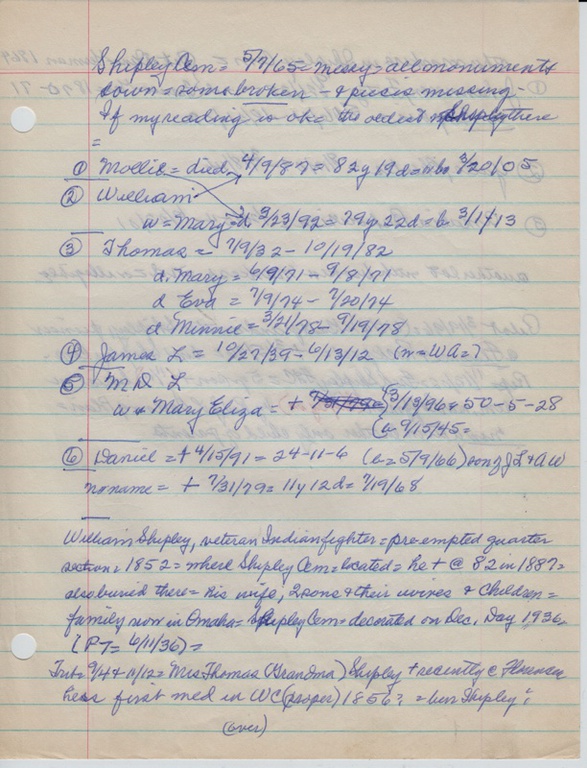 Shipley Cem = 5/7/65 = messy = all monuments
down = some broken - & pieces missing -
If my reading is ok = the oldest Shipley there
=
① Mollie = died 4/9/87 = 82y 19d = b 3/20/05
② William
w = Mary = d 3/23/92 = 79y 22d = b 3/1/13
③ Thomas = 7/9/32 - 10/19/82
d. Mary = 6/9/71 - 9/8/71
d Eva = 7/9/74 - 7/20/74
d Minnie = 3/21/78 - 9/19/78
④ James L = 10/27/39 - 6/13/12 (m = WA = ?)
⑤ M D L
w & Mary Eliza = + 3/13/96 = 50-5-28
(b 9/15/45 =
⑥ Daniel = + 4/15/91 = 24-11-6 (b = 5/9/66) son of J L & A W
no name = + 7/31/79 = 11y 12d = 7/19/68
William Shipley, veteran Indian fighter = pre-empted quarter
section = 1852 = where Shipley Cem = located = he + @ 82 in 1887 =
also buried there = his wife, 2 sons & their wives & children =
family now in Omaha = Shipley Cem = decorated on Dec. Day 1936
(PT = 6/11/36) =
9/4 & 11/12 = Mrs Thomas (Grandma) Shipley + recently @ Florence
first med in WC (proper) 1856? = Shipley?
(over)